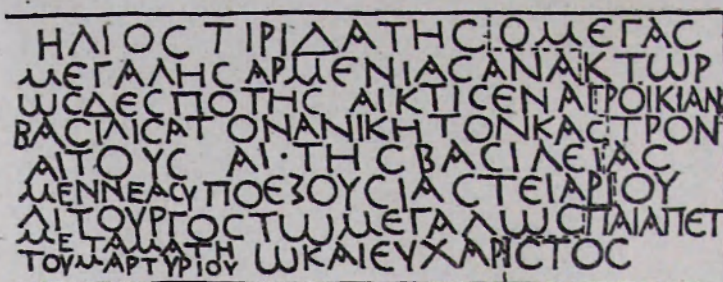 ΗΛΙΟϹ ΤΙΡΙΔΑΤΗϹ Ο ΜΕΓΑϹ
ΜΕΓΑΛΗϹ ΑΡΜΕΝΙΑϹ ΑΝΑΚΤωΡ
ωϹΔΕϹΠΟΤΗϹ ΑΙΚΤΙϹΕΝΑΓΡΟΙΚΙΑΝ
ΒΑϹΙΛΙϹΑΤ ΟΝΑΝΙΚΗΤΟΝΚΑϹΤΡΟΝ
ΑΙΤΟΥϹ ΑΙ·ΤΗϹΒΑϹΙΛΕΙΑϹ
ΜΕΝΝΕΑϹΥΠΟΕΖΟΥϹΙΑϹΤΕΙΑΡΙΟΥ
ΛΙΤΟΥΡΓΟϹΤωΜΕΓΑΛωϹΠΑΙΑΠΕΤ
ΜΕΤΑΜΑΤΗ
ΤΟΥΜΑΡΤΥΡΙΟΥ ωΚΑΙΕΥΧΑΡΙϹΤΟϹ